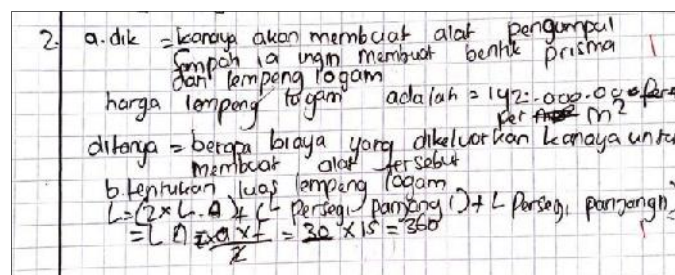 2. a. dik = kanaya akan membuat alat pengumpul
Sampah ia ingin membuat bentk prisma
dari lempeng logam
harga lempeng logam adalah = 142.000.00
per m²
ditanya = berapa biaya yang dikeluarkan kanaya untu
membuat alat tersebut
b. tentukan luas lempeng logam
L = (2 x L. Δ) + (L Persegi panjang 1) + L Persegi panjang
= L Δ = 2 x a x t / 2 = 30 x 15 = 360